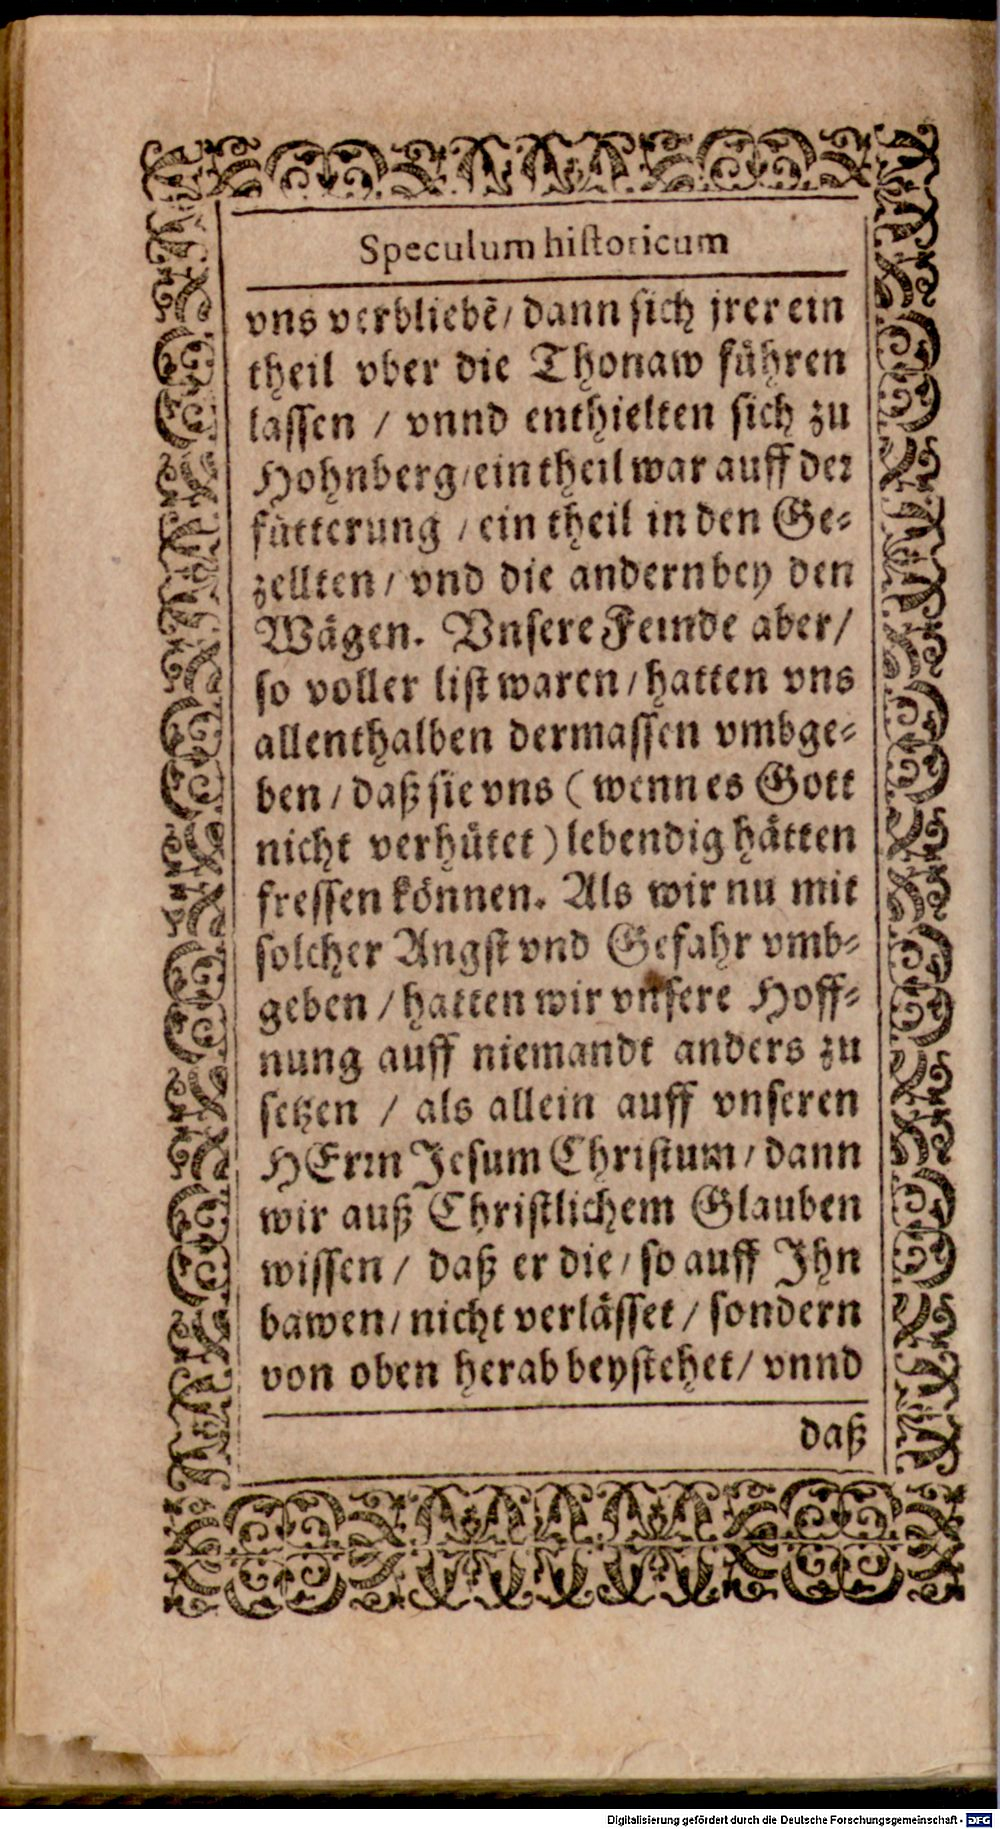 Speculum hiſtoricum
vns verbliebẽ/ dann ſich jrer ein
theil vber die Thonaw führen
laſſen / vnnd enthielten ſich zu
Hohnberg/ ein theil war auff der
fütterung / ein theil in den Ge⸗
zellten/ vnd die andern bey den
Wägen. Vnſere Feinde aber/
ſo voller liſt waren/ hatten vns
allenthalben dermaſſen vmbge⸗
ben/ daß ſie vns (wenn es Gott
nicht verhütet) lebendig hätten
freſſen können. Als wir nu mit
ſolcher Angſt vnd Gefahr vmb⸗
geben / hatten wir vnſere Hoff⸗
nung auff niemandt anders zu
ſetzen / als allein auff vnſeren
HErꝛn Jeſum Chriſtum/ dann
wir auß Chriſtlichem Glauben
wiſſen/ daß er die/ ſo auff Jhn
bawen/ nicht verläſſet/ ſondern
von oben herab beyſtehet/ vnnd
daß
Digitalisierung gefördert durch die Deutsche Forschungsgemeinschaft - DFG